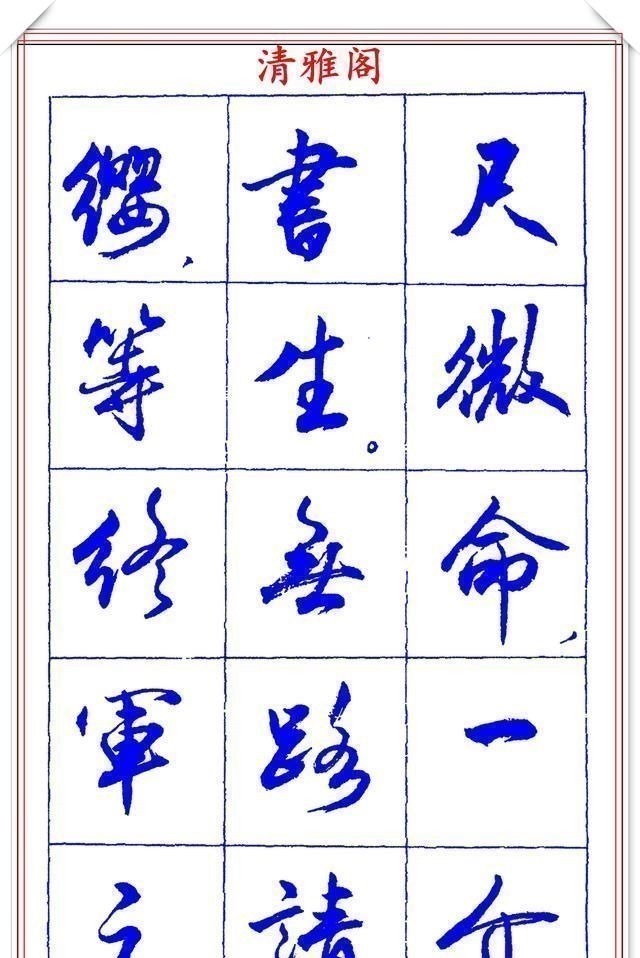 清雅阁
尺微命，一介
書生。無路請
纓，等終軍之